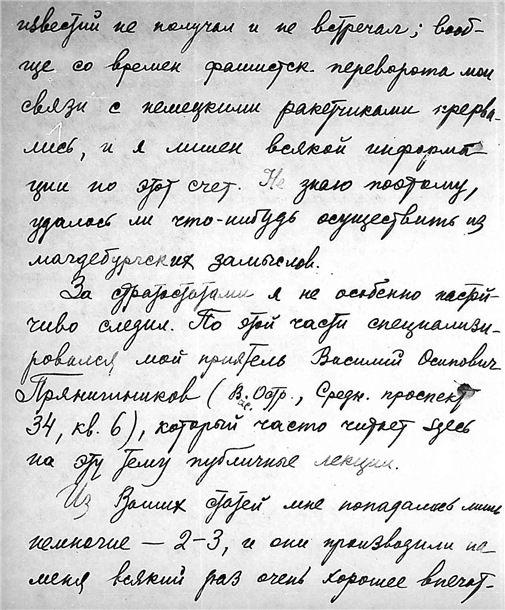 известий не получал и не встречал; вооб-
ще со времен фашистск. переворота мои
связи с немецкими ракетчиками прерва-
лись, и я лишен всякой информа
ции по этот счет. Не знаю поэтому,
удалось ли что-нибудь осуществить из
магдебургских замыслов.
За стратостатами я не особенно настой-
чиво следил. По этой части специализи-
ровался мой приятель Василий Осипович
Прянишников (Вас. Остр., Средн. проспект
34, кв. 6), который часто читает здесь
на эту тему публичные лекции.
Из Ваших статей мне попадалось лишь
немногие — 2-3, и они производили на
меня всякий раз очень хорошее впечат-